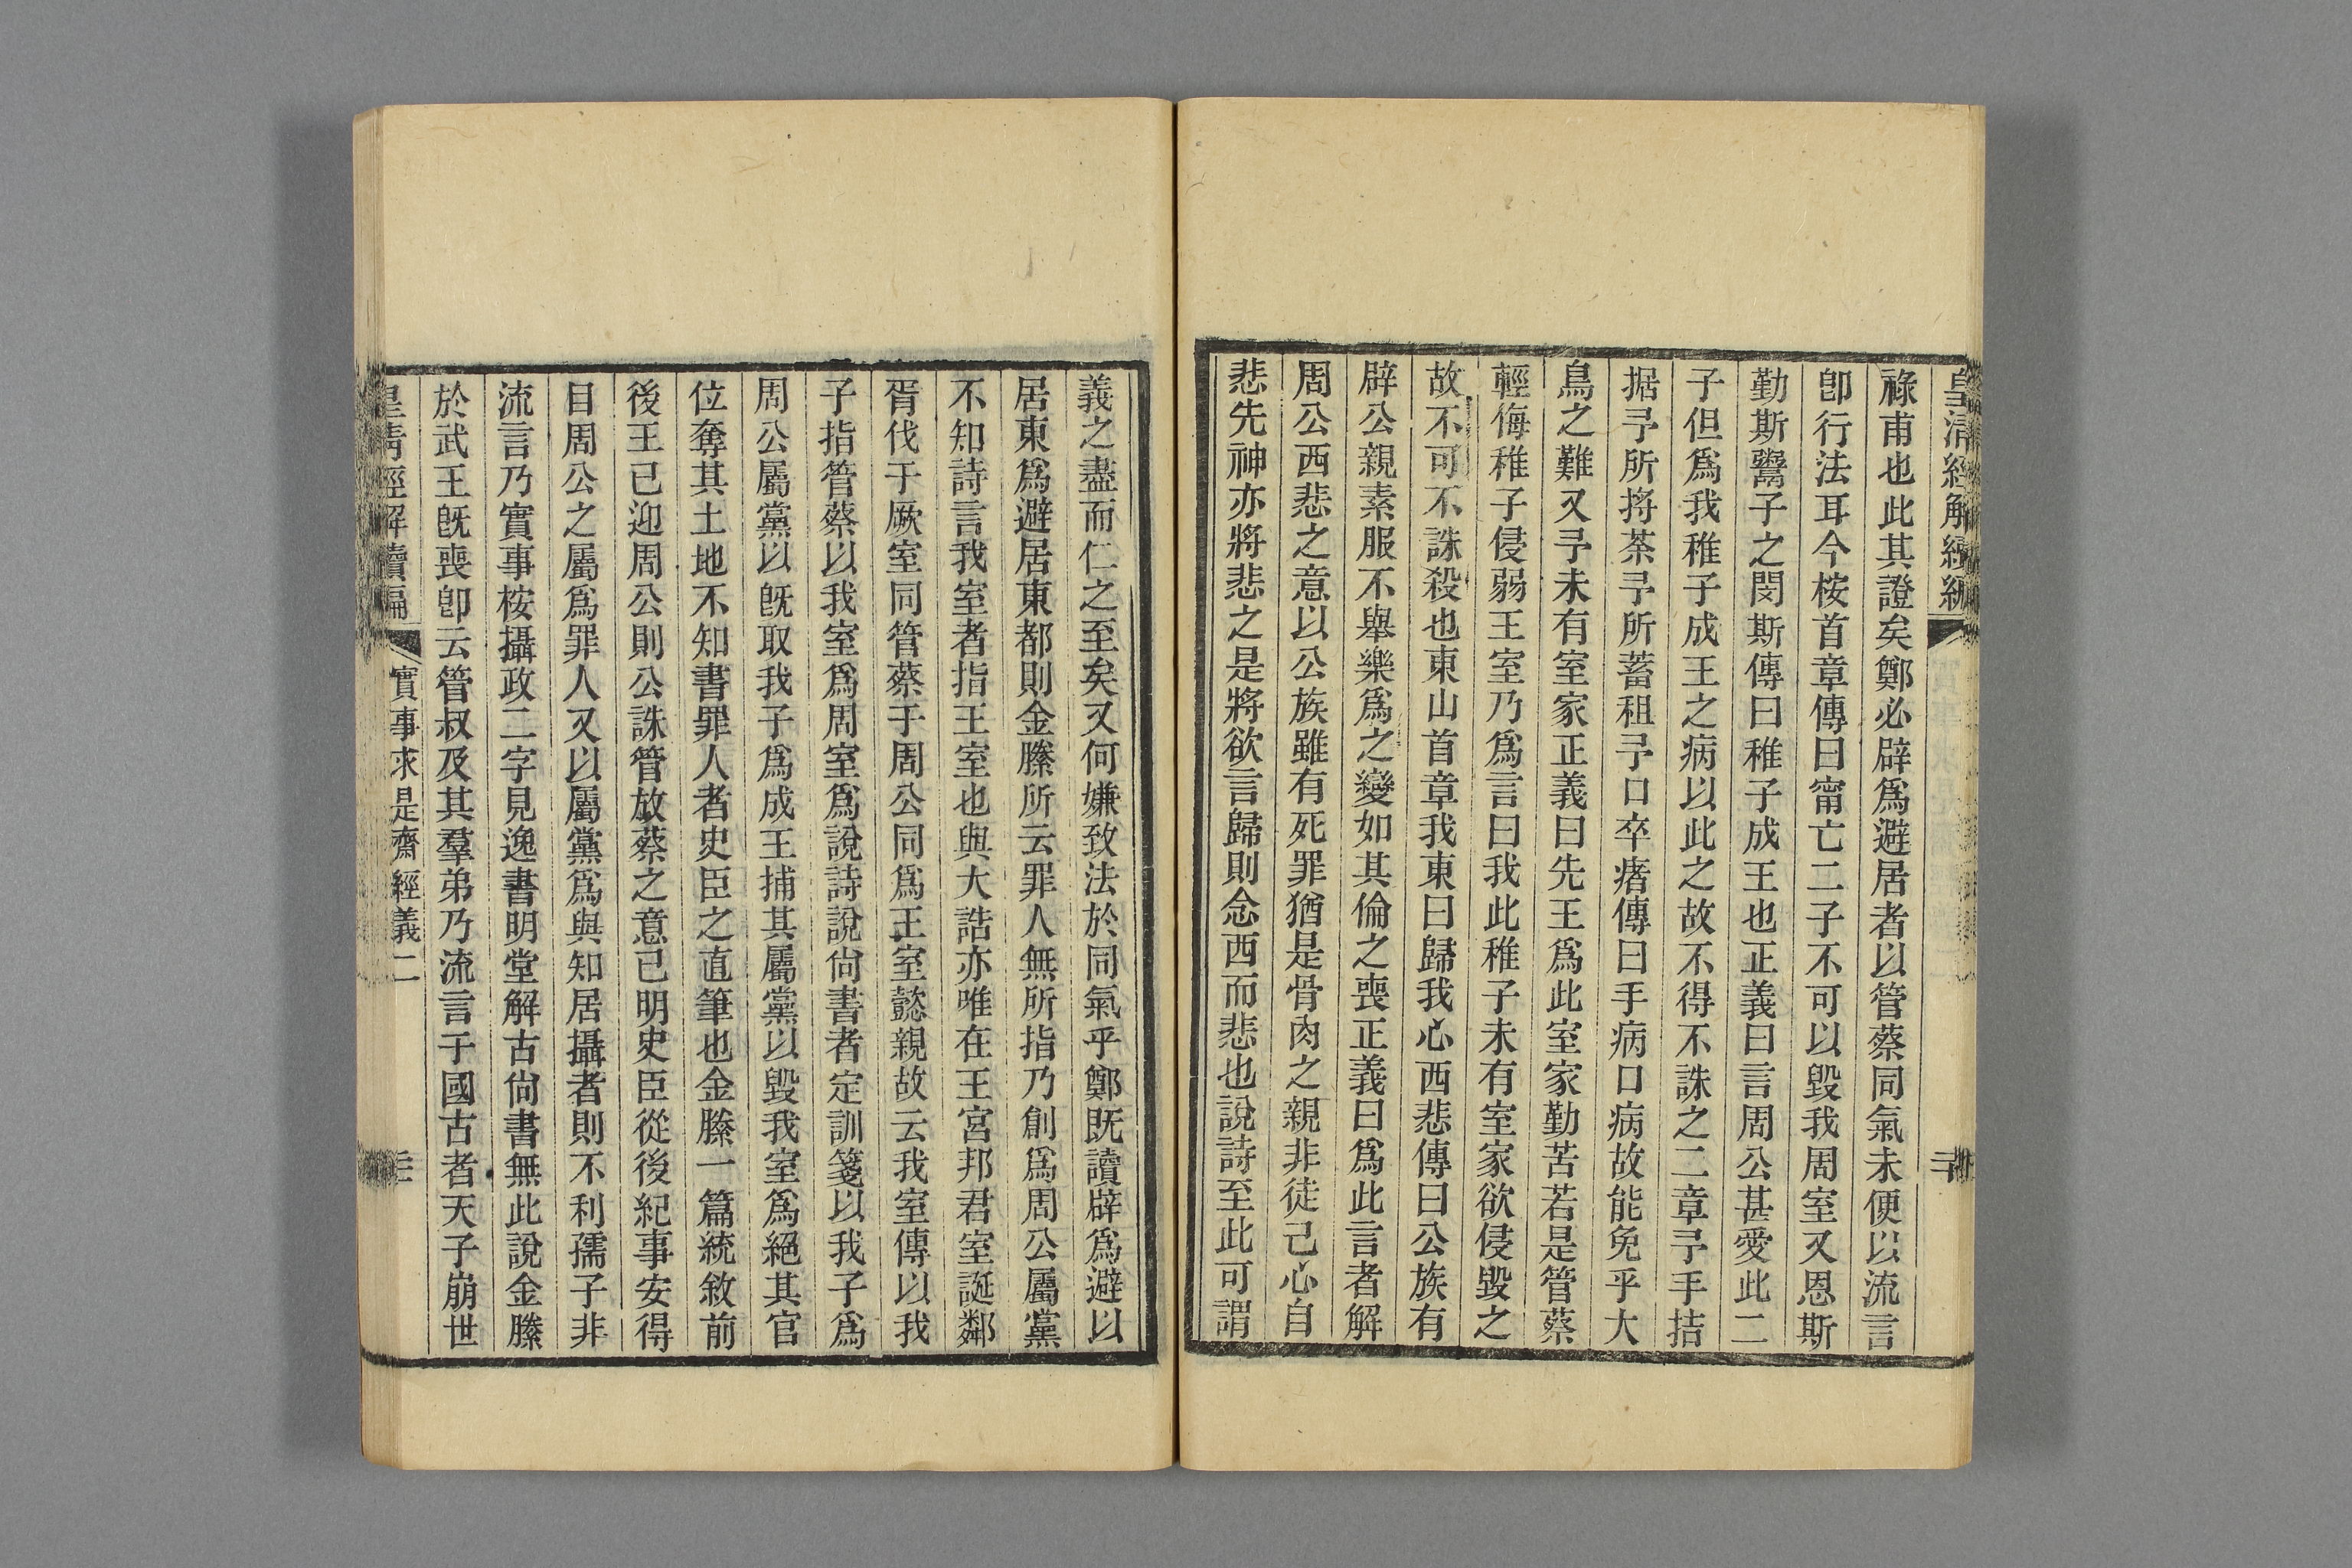 皇清經解續編
祿甫也此其證矣鄭必辟爲避居者以管蔡同氣未便以流言
卽行法耳今桉首章傳曰甯亡二子不可以毀我周室又恩斯
勤斯鬻子之閔斯傳曰稚子成王也正義曰言周公甚愛此二
子但爲我稚子成王之病以此之故不得不誅之二章予手拮
据予所捋荼予所蓄租予口卒瘏傳曰手病口病故能免乎大
鳥之難又予未有室家正義曰先王爲此室家勤苦若是管蔡
輕侮稚子侵弱王室乃爲言曰我此稚子未有室家欲侵毀之
故不可不誅殺也東山首章我東曰歸我心西悲傳曰公族有
辟公親素服不舉樂爲之變如其倫之喪正義曰爲此言者解
周公西悲之意以公族雖有死罪猶是骨肉之親非徒己心自
悲先神亦將悲之是將欲言歸則念西而悲也說詩至此可謂
義之盡而仁之至矣又何嫌致法於同氣乎鄭既讀辟爲避以
居東爲避居東都則金縢所云罪人無所指乃創爲周公屬黨
不知詩言我室者指王室也與大誥亦唯在王宮邦君室誕鄰
胥伐于厥室同管蔡于周公同爲王室懿親故云我室傳以我
子指管蔡以我室爲周室爲說詩說尙書者定訓箋以我子爲
周公屬黨以旣取我子爲成王捕其屬黨以毀我室爲絕其官
位奪其土地不知書罪人者史臣之直筆也金縢一篇統敘前
後王已迎周公則公誅管放蔡之意已明史臣從後紀事安得
目周公之屬爲罪人又以屬黨爲與知居攝者則不利孺子非
流言乃實事桉攝政二字見逸書明堂解古尙書無此說金縢
於武王旣喪卽云管叔及其羣弟乃流言于國古者天子崩世
皇清經解續編 實事求是齋經義二